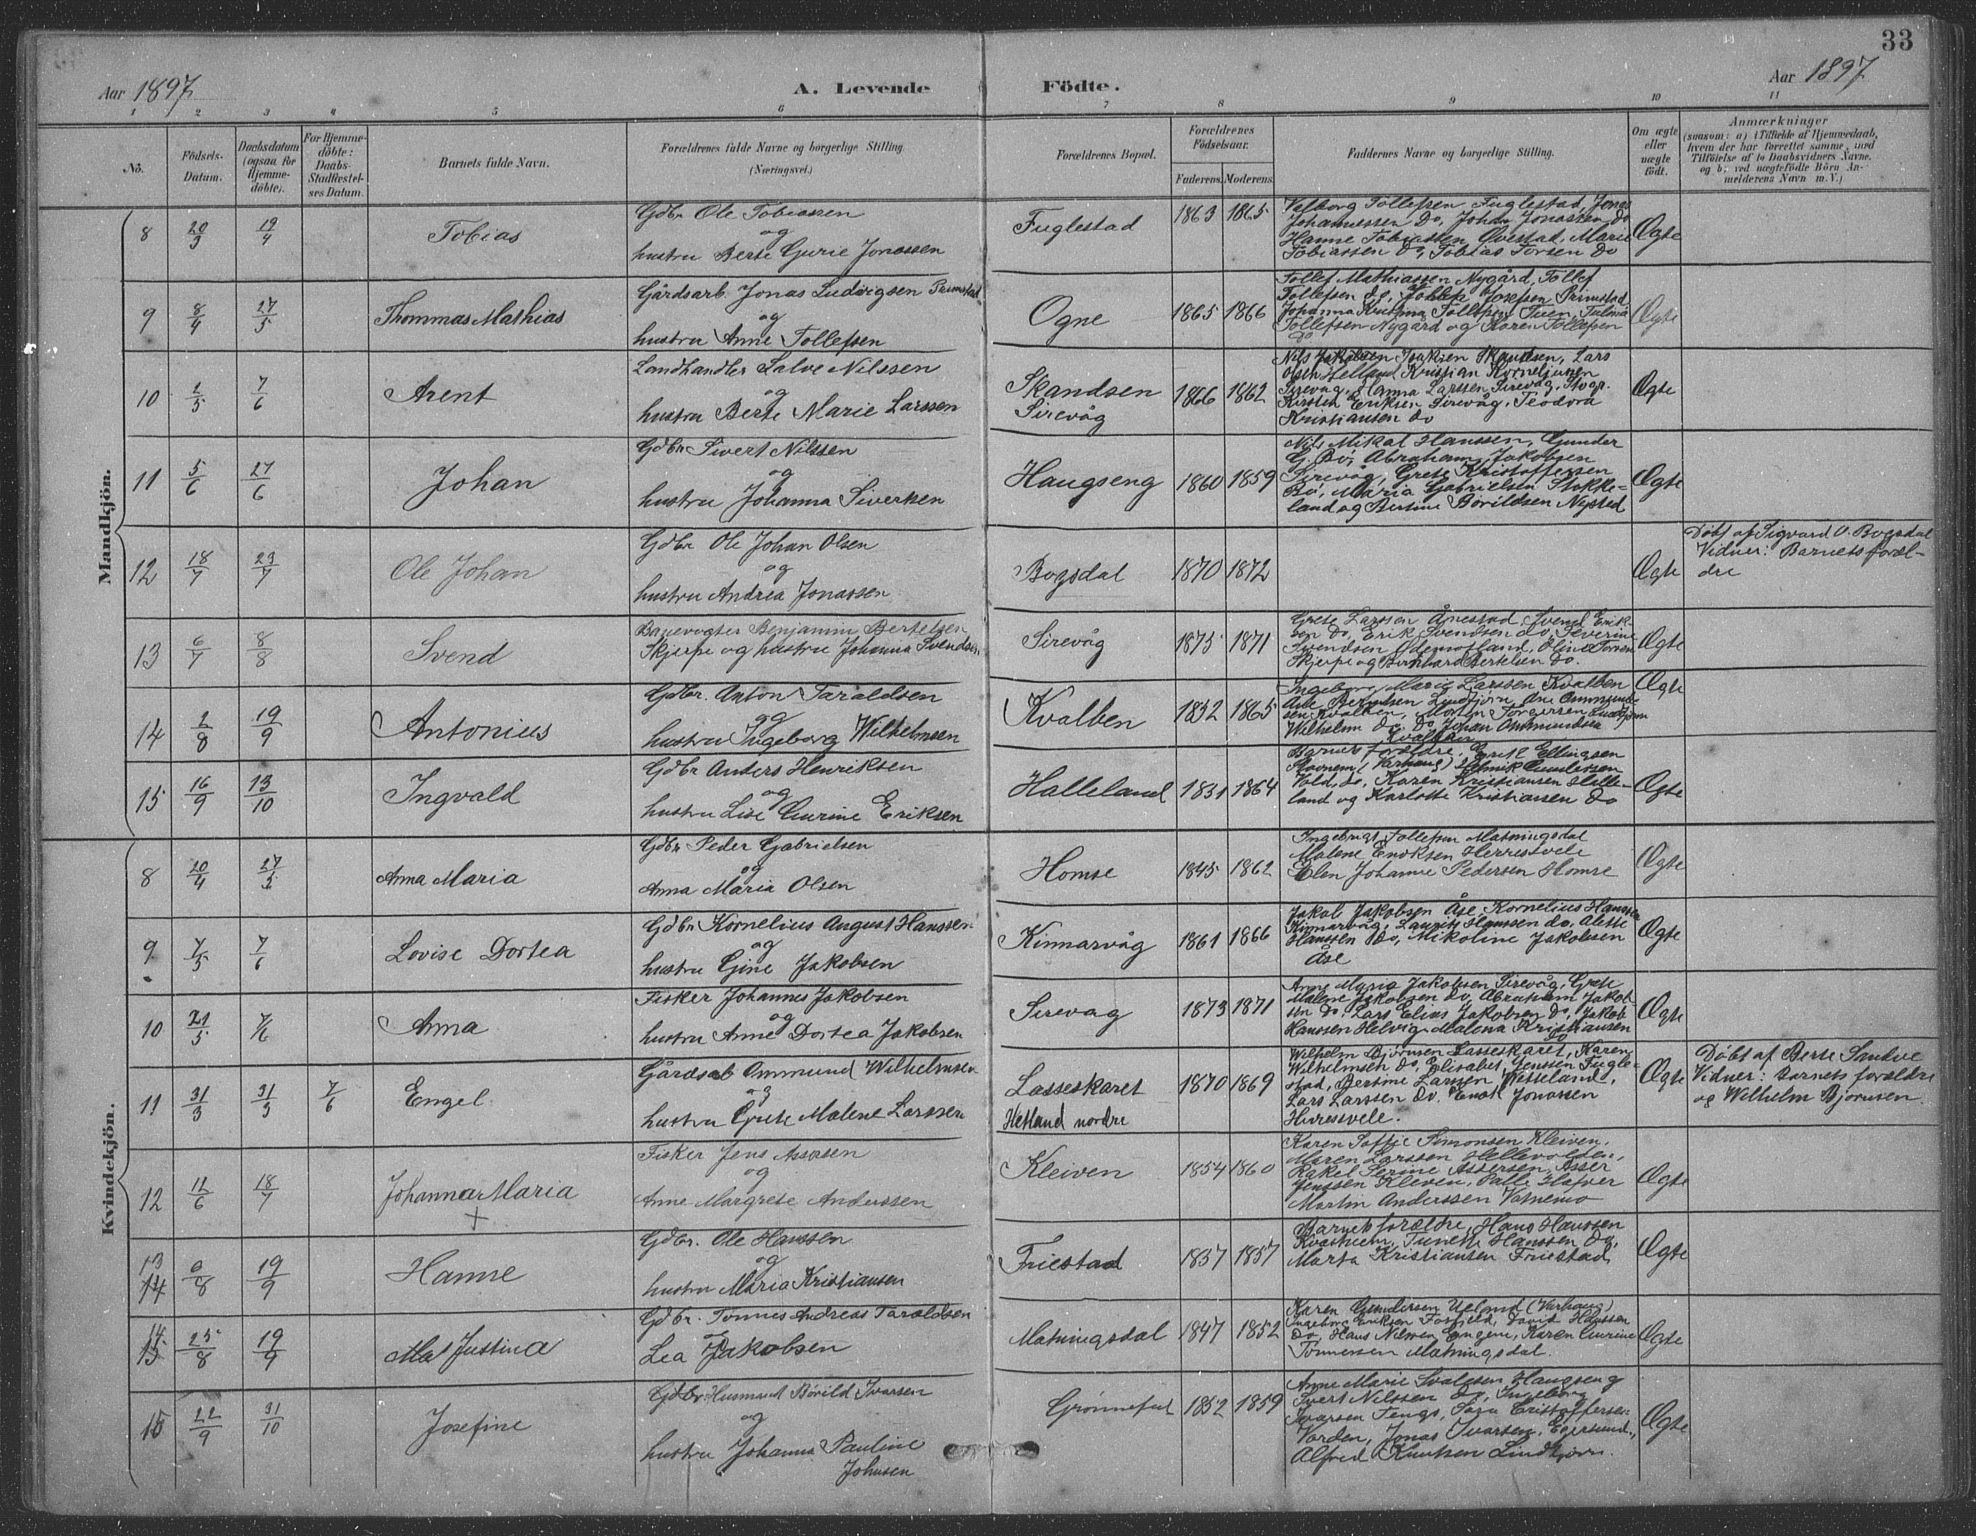 33
Aar 1897
A. Levende
Födte.
Aar 1897
1 2 3 4 5 6 7 8 9 10 11
No.
Födsels-
Datum.
Daabsdatum
(ogsaa for
Hjemme-
döbte).
For Hjemme-
döbte:
Daabs-
Stadfæstel-
ses Datum.
Barnets fulde Navn.
Forældrenes fulde Navne og borgerlige Stilling
(Næringsvei.)
Forældrenes Bopæl.
Forældrenes
Födselsaar.
Faderens. Moderens.
Faddernes Navne og borgerlige Stilling.
Om ægte
eller
uægte
födt.
Anmærkninger
(saasom: a) i Tilfælde af Hjemmedaab,
hvem der har forrettet samme, med
Tilföielse af to Daabsvidners Navne,
og b; ved uægtefödte Börn An-
melderens Navn m. V.)
Mandkjön.
8 20/3 19/4 Tobias
Gdbr Ole Tobiassen
og
hustru Berte Gurie Jonassen
Fuglestad 1863 1865
Valborg Tollefsen Fuglestad, Jonas
Johannessen do, Johan Jonassen do
Hanne Tobiassen Øvestad, Marie
Tobiassen do, Tobias Torsen do
Ægte
9 8/4 27/5 Thommas Mathias
Gårdsarb. Jonas Ludvigsen Primstad
og
hustru Anne Tollefsen
Ogne 1865 1866
Tollef Mathiassen Nygård, Tollef
Tollefsen do, Tollef Josefsen Primstad
Johanna Kristina Tollefsen Tuen, Talina
Tollefsen Nygård og Karen Tollefsen
do
Ægte
10 1/5 7/6 Arent
Landhandler Salve Nilssen
og
hustru Berte Marie Larssen
Skandsen
Sirevåg
1866 1862
Nils Jakobsen Joakien Skandsen, Lars
Olsen Helland Kristian Korneliusen
Sirevåg, Hanna Larssen Sirevåg,
Kirsten Eriksen Sirevåg, Teodora
Kristiansen do
Ægte
11 5/6 27/6 Johan
Gdbr Sivert Nilssen
og
hustru Johanna Sivertsen
Haugseng 1860 1859
Nils Mikal Hanssen, Gunder
G. Bø, Abraham Jakobsen
Sirevåg, Grete Kristoffersen
Bø, Maria Gabrielsen Stokke-
land og Bertine Børildsen Nysted
Ægte
12 18/7 23/7 Ole Johan
Gdbr Ole Johan Olsen
og
hustru Andrea Jonassen
Bogsdal 1870 1872
Ægte
Døbt af Sigvard O. Bogsdal
Vidner: Barnets foræl-
dre
13 6/7 8/8 Svend
Banevogter Benjamin Bertelsen
Skjerpe og hustru Johanna Svendsen
Sirevåg 1875 1871
Grete Larssen Ånestad, Svend Erik-
sen do, Erik Svendsen do, Severine
Svendsen Ødemotland, Oline Torsen
Skjerpe og Bernhard Bertelsen do.
Ægte
14 2/8 19/9 Antonius
Gdbr Anton Taraldsen
og
hustru Ingeborg Wilhelmsen
Kvalben 1832 1865
Ingeborg Marie Larssen Kvalben
Ane Berntsen Lindtjørn, Ane Ommund-
sen Kvalben, Morten Torgersen Lindtjørn
Wilhelm do do Johan Ommundsen
Kvalben
Ægte
15 16/9 13/10 Ingvald
Gdbr Anders Henriksen
og
hustru Lise Gurine Eriksen
Halleland 1831 1864
Barnets forældre, Erik Ellingsen
Stavnem (Varhaug) Gundersen
Vold, do, Karen Kristiansen Halle-
land og Karlotte Kristiansen do
Ægte
Kvindekjön.
8 20/4 27/5 Anna Maria
Gdbr Peder Gabrielsen
og
Anna Maria Olsen
Homse 1845 1862
Ingebrigt Tollefsen Matningsdal
Malene Enoksen Herresvele
Elen Johanne Pedersen Homse
Ægte
9 7/5 7/6 Lovise Dortea
Gdbr Kornelius August Hanssen
og
hustru Gine Jakobsen
Kinnarvåg 1861 1866
Jakob Jakobsen Åse, Kornelius Hanssen
Kinnarvåg, Laurits Hanssen do, Alette
Hanssen do, Mikoline Jakobsen
Åse
Ægte
10 21/5 7/6 Anna
Fisker Johannes Jakobsen
og
hustru Anne Dortea Jakobsen
Sirevag 1873 1871
Anne Maria Jakobsen Sirevåg, Grete
Malene Jakobsen do, Abraham Jakob-
sen do, Lars Elias Jakobsen do, Jakob
Hanssen Helvig, Malena Kristiansen
do
Ægte
11 31/3 31/3 7/6 Engel
Gårdsarb Ommund Wilhelmsen
og
hustru Grete Malene Larssen
Lasseskaret
Hetland nordre
1870 1869
Wilhelm Bjørnsen Lasseskaret, Karen
Wilhelmsen do, Elisabet Jenssen Fugle-
stad, Bertine Larssen Vetteland,
Lars Larssen do. Enok Jonassen
Hæresvele.
Ægte
Døbt af Berte Sandve
Vidner: Barnets forældre
og Wilhelm Bjørnsen.
12 11/6 18/7 Johanna Maria
+
Fisker Jens Assersen
og
Anne Margrete Anderssen
Kleiven 1854 1860
Karen Soffie Simonsen Kleiven,
Maren Larssen Hellevolden,
Rakel Serine Assersen, Asser
Jenssen Kleven, Palle Hafver
Martin Anderssen Vatnemo
Ægte
13
14 6/8 19/9 Hanne
Gdbr. Ole Hanssen
og
hustru Maria Kristiansen
Friestad 1857 1857
Barnets forældre, Hans Hanssen
Kvasheim, Tunette Hanssen do,
Marta Kristiansen Friestad
Ægte
14
15 25/8 19/9 Mal Justina
Gdbr. Tønnes Andreas Taraldsen
og
Lea Jakobsen
Matningsdal 1847 1852
Karen Gundersen Ueland (Varhaug)
Ingeborg Eriksen Fosfjeld, David Hanssen
do, Hans Nilssen Engene, Karen Gurine
Tønnessen Matningsdal.
Ægte
15 22/9 31/10 Josefine
Gdbr. Husmand Børild Ivarsen
og
hustru Johanna Pauline
Johnsen
Grønnefat 1852 1859
Anne Marie Svalesen Haugseng
Sivert Nilssen do, Ingeborg
Ivarsen Fengs, Kristoffersen
Varden, Jonas Ivarsen, Egersund,
Alfred Knutsen Lindtjørn.
Ægte